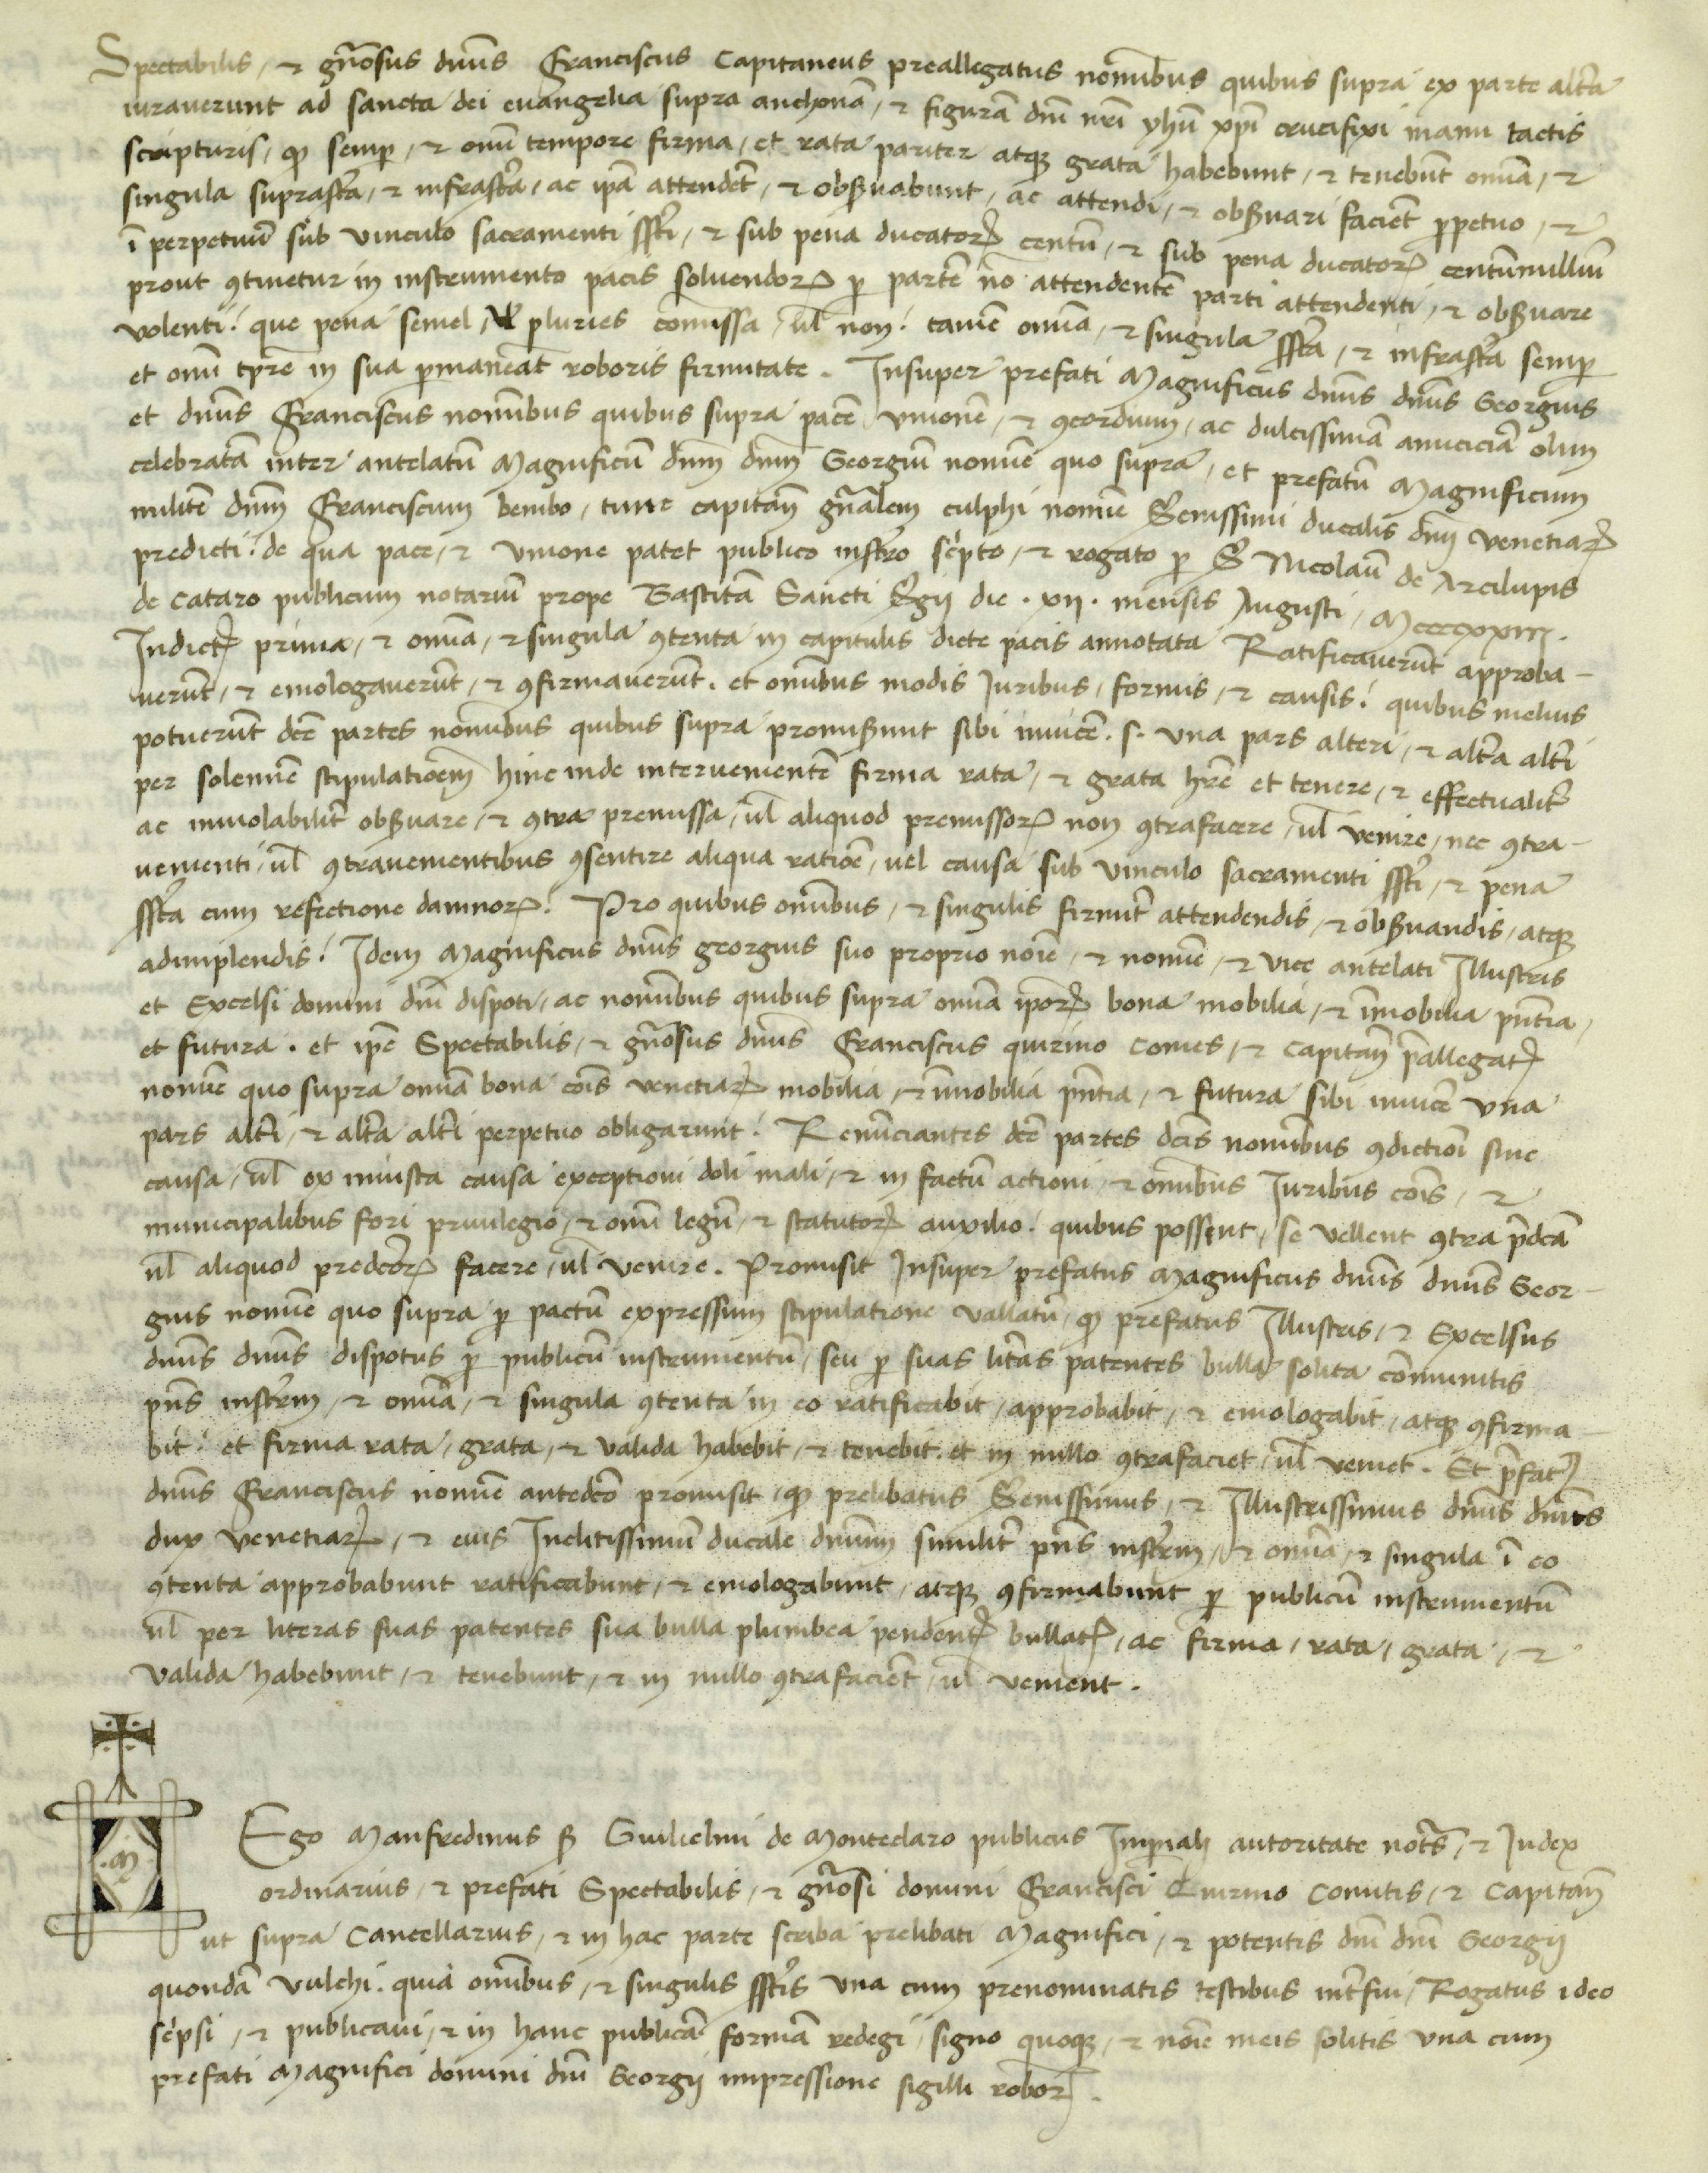 Spectabilis, et gn̄osus dn̄us Franciscus Capitaneus preallegatus noīnibus quibus supra ex parte altā
iuraverunt ad sancta dei euāngelia supra anchonā, et figurā dnī nr̄i yhū xp̄i crucifixi manu tactis
scripturis, qꝫ semꝑ, et omī tempore firma, et rata pariter atqꝫ grata habebunt, et tenebūt omīa, et
singula suprascp̄ta, et infrascp̄ta, ac ip̄a attendēt, et obẜuabunt, ac attendi, et obẜuari faciēt ꝑpetuo, et
ī perpetuū sub vinculo sacramenti sscp̄ti, et sub pena ducatoꝝ centū, et sub pena ducatoꝝ centūmilliū
prout ꝯtinetur in instrumento pacis soluendoꝝ ꝑ partē nō attendentē parti attendenti, et obẜuare
volenti. que pena semel, vel pluries comissa, ul̄ non. tamē omīa, et singula sscp̄ta, et infrascp̄ta semꝑ
et omī tp̄re in sua ꝑmaneāt roboris firmitate. Insuper prefati Magnificus dn̄us dn̄us Georgius
et dn̄us Franciscus nomībus quibus supra pacē, vnionē, et ꝯcordium, ac dulcissimā amiciciā olim
celebratā inter antelatū Magnificū dn̄m dn̄m Georgiū nomīe quo supra, et prefatū Magnificum
militē dn̄m Franciscum bembo, tunc capitan̄ gn̄alem culphi nomīe Serenissimi ducalis dn̄ii venetiaꝝ
predicti. de qua pace, et vnione patet publico instr̄o sc̄pto, et rogato ꝑ Ser Nicolaū de Arcilupis
de Cataro publicum notariū prope Bastitā Sancti Sergii die . xii . mensis Augusti, Mccccxxiii.
Indictꝭ prima, et omīa, et singula ꝯtenta in capitulis dicte pacis annotata Ratificauerūt approba-
uerūt, et emologauerūt, et ꝯfirmauerūt. et omībus modis Iuribus, formis, et causis. quibus melius
potuerūt dc̄e partes nomībus quibus supra promiẜunt sibi inuicē. s. vna pars alteri, et altā altī
per solemnē stipulatiōem hinc inde interuenientē firma rata, et grata hr̄e et tenere, et effectualit̄
ac inuiolabilit̄ obẜuare, et ꝯtra premissa, ul̄ aliquod premissoꝝ non ꝯtrafacere, ul̄ venire, nec ꝯtra-
uenienti, ul̄ ꝯtrauenientibus ꝯsentire aliqua ratiōe, uel causa sub vinculo sacramenti sscp̄ti, et pena
sscp̄ta cum refectione damnoꝝ. Pro quibus omībus, et singulis firmit̄ attendendis, et obẜuandis, atqꝫ
adimplendis. Idem Magnificus dn̄us georgius suo proprio noīe, et nomīe, et vice antelati Illustris
et Excelsi domini dnī dispoti, ac nomībus quibus supra omīa ip̄oꝝ bona mobilia, et īmobilia pn̄tia,
et futura. et ip̄e Spectabilis, et gn̄osus dn̄us Franciscus quirino Comes, et Capitan̄ p̄allegatꝭ
nomīe quo supra omīa bona coīs venetiaꝝ mobilia, et īmobilia pn̄tia, et futura sibi inuicē vna
pars altī, et altā altī perpetuo obligarunt. Renūciantes dc̄e partes dc̄is nomībus ꝯdictioī sine
causa, ul̄ ex iniusta causa exceptioni doli mali, et in factū actioni, et omībus Iuribus coīs, et
municipalibus fori priuilegio, et omī legū, et statutoꝝ auxilio. quibus possent, se vellent ꝯtra p̄dc̄a
ul̄ aliquod predc̄oꝝ facere, ul̄ venire. Promisit Insuper prefatus Magnificus dn̄us dn̄us Geor-
gius nomīe quo supra ꝑ pactū expressum stipulatione vallatū, qꝫ prefatus Illustris, et Excelsus
dn̄us dn̄us dispotus ꝑ publicū instrumentū, seu ꝑ suas litt̄as patentes bulla solita cōmunitis
pn̄s instr̄m, et omīa, et singula ꝯtenta in eo ratificabit, approbabit, et emologabit, atqꝫ ꝯfirma-
bit. et firma rata, grata, et valida habebit, et tenebit. et in nullo ꝯtrafaciet, ul̄ veniet. Et p̄fatꝭ
dn̄us Franciscus nomīe antedc̄o promisit, qꝫ prelibatus Serenissimus, et Illustrissimus dn̄us dn̄us
dux Venetiaꝝ, et eius Inclitissimū ducale dn̄ium similit̄ pn̄s instr̄m, et omīa, et singula ī eo
ꝯtenta approbabunt ratificabunt, et emologabunt, atqꝫ ꝯfirmabunt ꝑ publicū instrumentū
ul̄ per literas suas patentes sua bulla plumbea pendentꝭ bullatꝭ, ac firma, rata, grata, et
valida habebunt, et tenebunt, et in nullo ꝯtrafaciēt, ul̄ venient.
.M.
Ego Manfredinus ẜ Guilielmi de Monteclaro publicus Imꝑiali autoritate not̄s, et Iudex
ordinarius, et prefati Spectabilis, et gn̄osi domini Francisci Quirino Comitis, et Capitan̄
ut supra Cancellarius, et in hac parte scriba prelibati Magnifici, et potentis dnī dnī Georgij
quondā Vulchi. quia omībus, et singulis sscp̄tis vna cum prenominatis testibus int̄fui, Rogatus ideo
sc̄psi, et publicaui, et in hanc publicā formā redegi, signo quoqꝫ, et noīe meis solitis vna cum
prefati Magnifici domini dnī Georgij impressione sigilli roborꝭ.